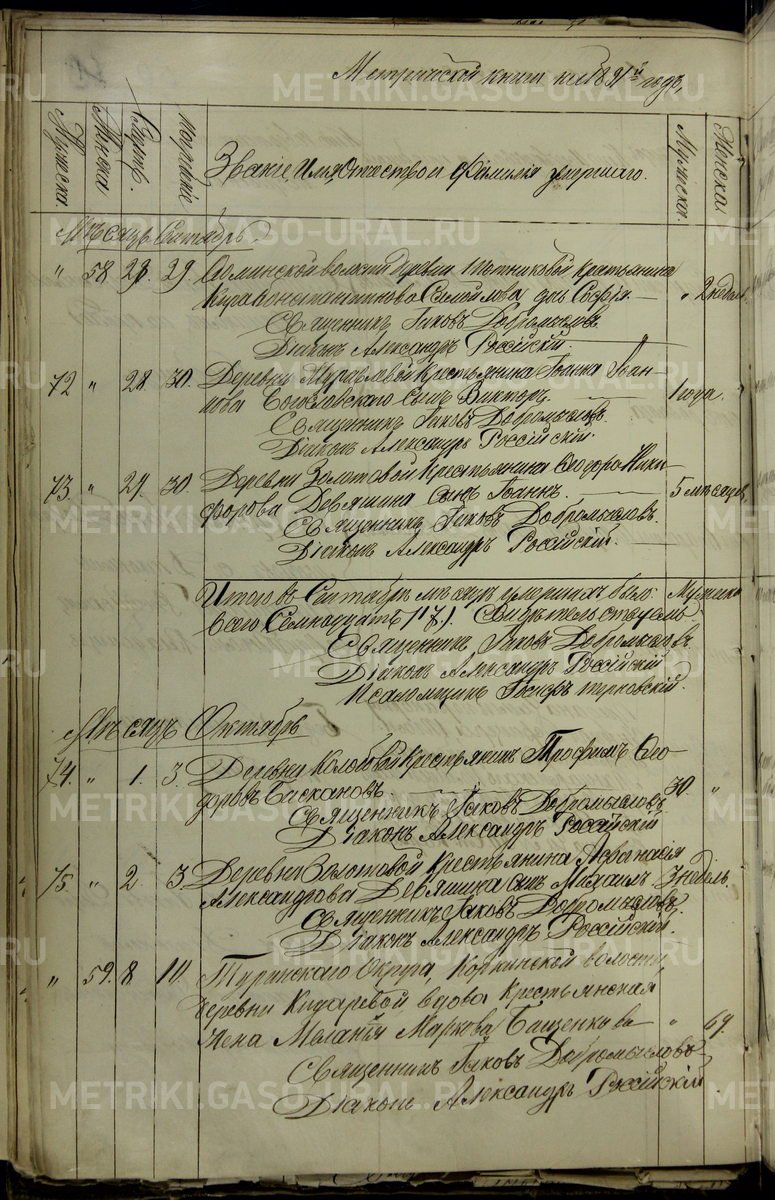 Метрической книги на 1891й годъ,
Мужеска.
Женска
Смерт.
погребенiе
Званiе, Имя, Отчество и Фамилiя умершаго.
Мужска.
Женска
Мѣсяцъ Сентябрь.
" 58 29. волости Деревни Плотниковой Крестьянина
Кира Константинова дчь Софiя — " 2 недѣль.
Священникъ Iаковъ Добромысловъ
Дiаконъ Александръ Россiйскiй.
72 " 28 30. Деревни Муравлевой Крестьянина Iоанна Iоан-
нова Богословскаго сынъ Викторъ. — 1 года. "
Священникъ Iаковъ Добромысловъ.
Дiаконъ Александръ Россiйскiй.
73. " 29. 30. Деревни Золотовой Крестьянина Ѳеодора Ники-
форова Девяшина сынъ Iоаннъ. — 5 мѣсяцев.
Священникъ Iаковъ Добромысловъ.
Дiаконъ Александръ Россiйскiй.
Итого въ Сентябрѣ мѣсяцѣ умершихъ было: Мужска
Всего Семнадцать Свидѣтельствуемъ
Священникъ Iаковъ Добромысловъ
Дiаконъ Александръ Россiйскiй
Псаломщикъ
Мѣсяцъ Октябрь
74. " 1. 3. Деревни Колобовой Крестьянинъ Трофимъ Ѳео-
доровъ Баскановъ. 30. "
Священникъ Iаковъ Добромысловъ
Дiаконъ Александръ Россiйскiй
75. " 2. 3. Деревни Золотовой Крестьянина Аѳанасiя
Александрова Девяшина сынъ Михаилъ 3 недѣль.
Священникъ Iаковъ Добромысловъ
Дiаконъ Александръ Россiйскiй.
" 59. 8 10. Туринскаго Округа, Коркинской волости,
деревни Кидаревой, вдова крестьянская
жена Меланiя Маркова Бащенкова " 69.
Священникъ Iаковъ Добромысловъ
Дiаконъ Александръ Россiйскiй
METRIKI.GASO-URAL.RU